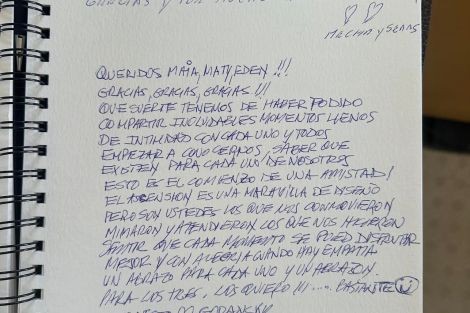 GRACIAS Y POR MUCHO
MECHA Y SEBAS
QUERIDOS MAIA, MATY, EDEN !!!
GRACIAS, GRACIAS, GRACIAS !!!
QUE SUERTE TENEMOS DE HABER PODIDO
COMPARTIR INOLVIDABLES MOMENTOS LLENOS
DE INTIMIDAD CON CADA UNO Y TODOS
EMPEZAR A CONOCERNOS, SABER QUE
EXISTEN PARA CADA UNO DE NOSOTROS
ESTO ES EL COMIENZO DE UNA AMISTAD!
EL ASCENSION ES UNA MARAVILLA DE DISEÑO
PERO SON USTEDES LOS QUE NOS CONMOVIERON
MIMARON Y ATENDIERON LOS QUE NOS HICIERON
SENTIR QUE CADA MOMENTO SE PUEDE DISFRUTAR
MEJOR Y CON ALEGRIA CUANDO HAY EMPATIA
UN ABRAZO PARA CADA UNO Y UN ABRAZON
PARA LOS TRES, LOS QUIERO !!! .... BASTANTE